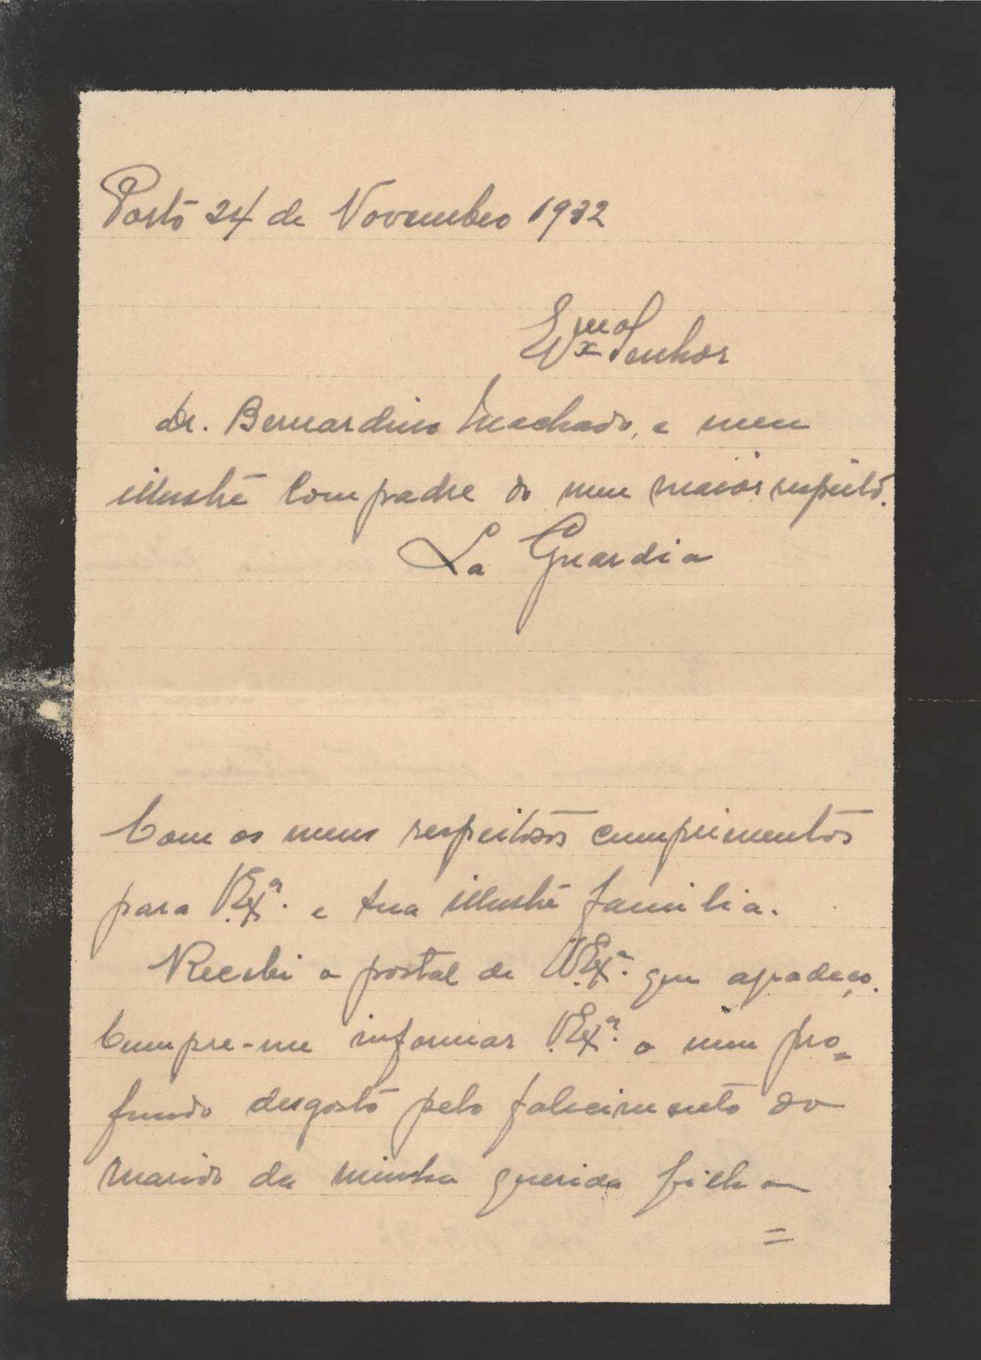 Porto 24 de Novembro 1932
Exmo Senhor
Dr. Bernardino Machado, e meu
illustre Compadre do meu maior respeito.
La Guardia
Com os meus respeitosos cumprimentos
para V. Exª. e sua illustre familia.
Recebi o postal de V. Exª. que agradeço.
Cumpre-me informar V. Exª. o meu pro=
fundo desgosto pelo falecimento do
marido da minha querida filha
=